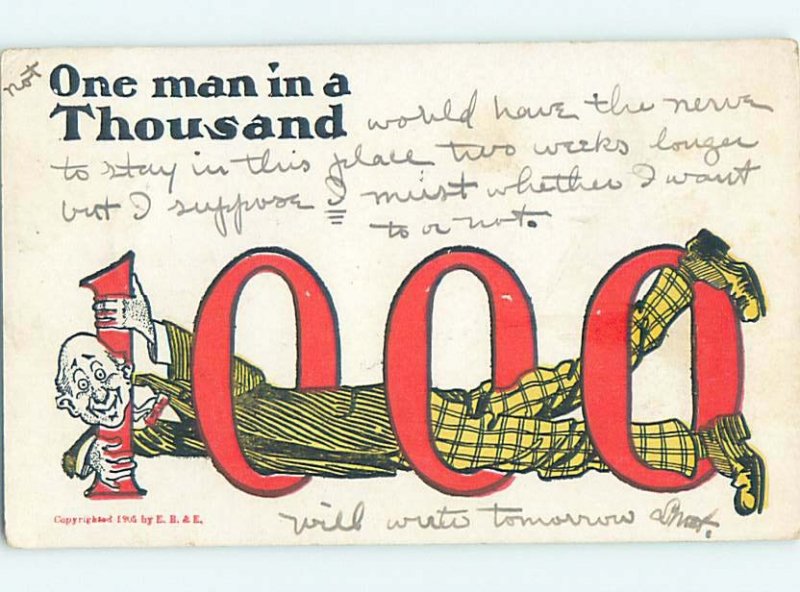 not One man in a
Thousand would have the nerve
to stay in this place two weeks longer
but I suppose I must whether I want
to or not.
1000
Copyrighted 1905 by E. B. & E.
will write tomorrow